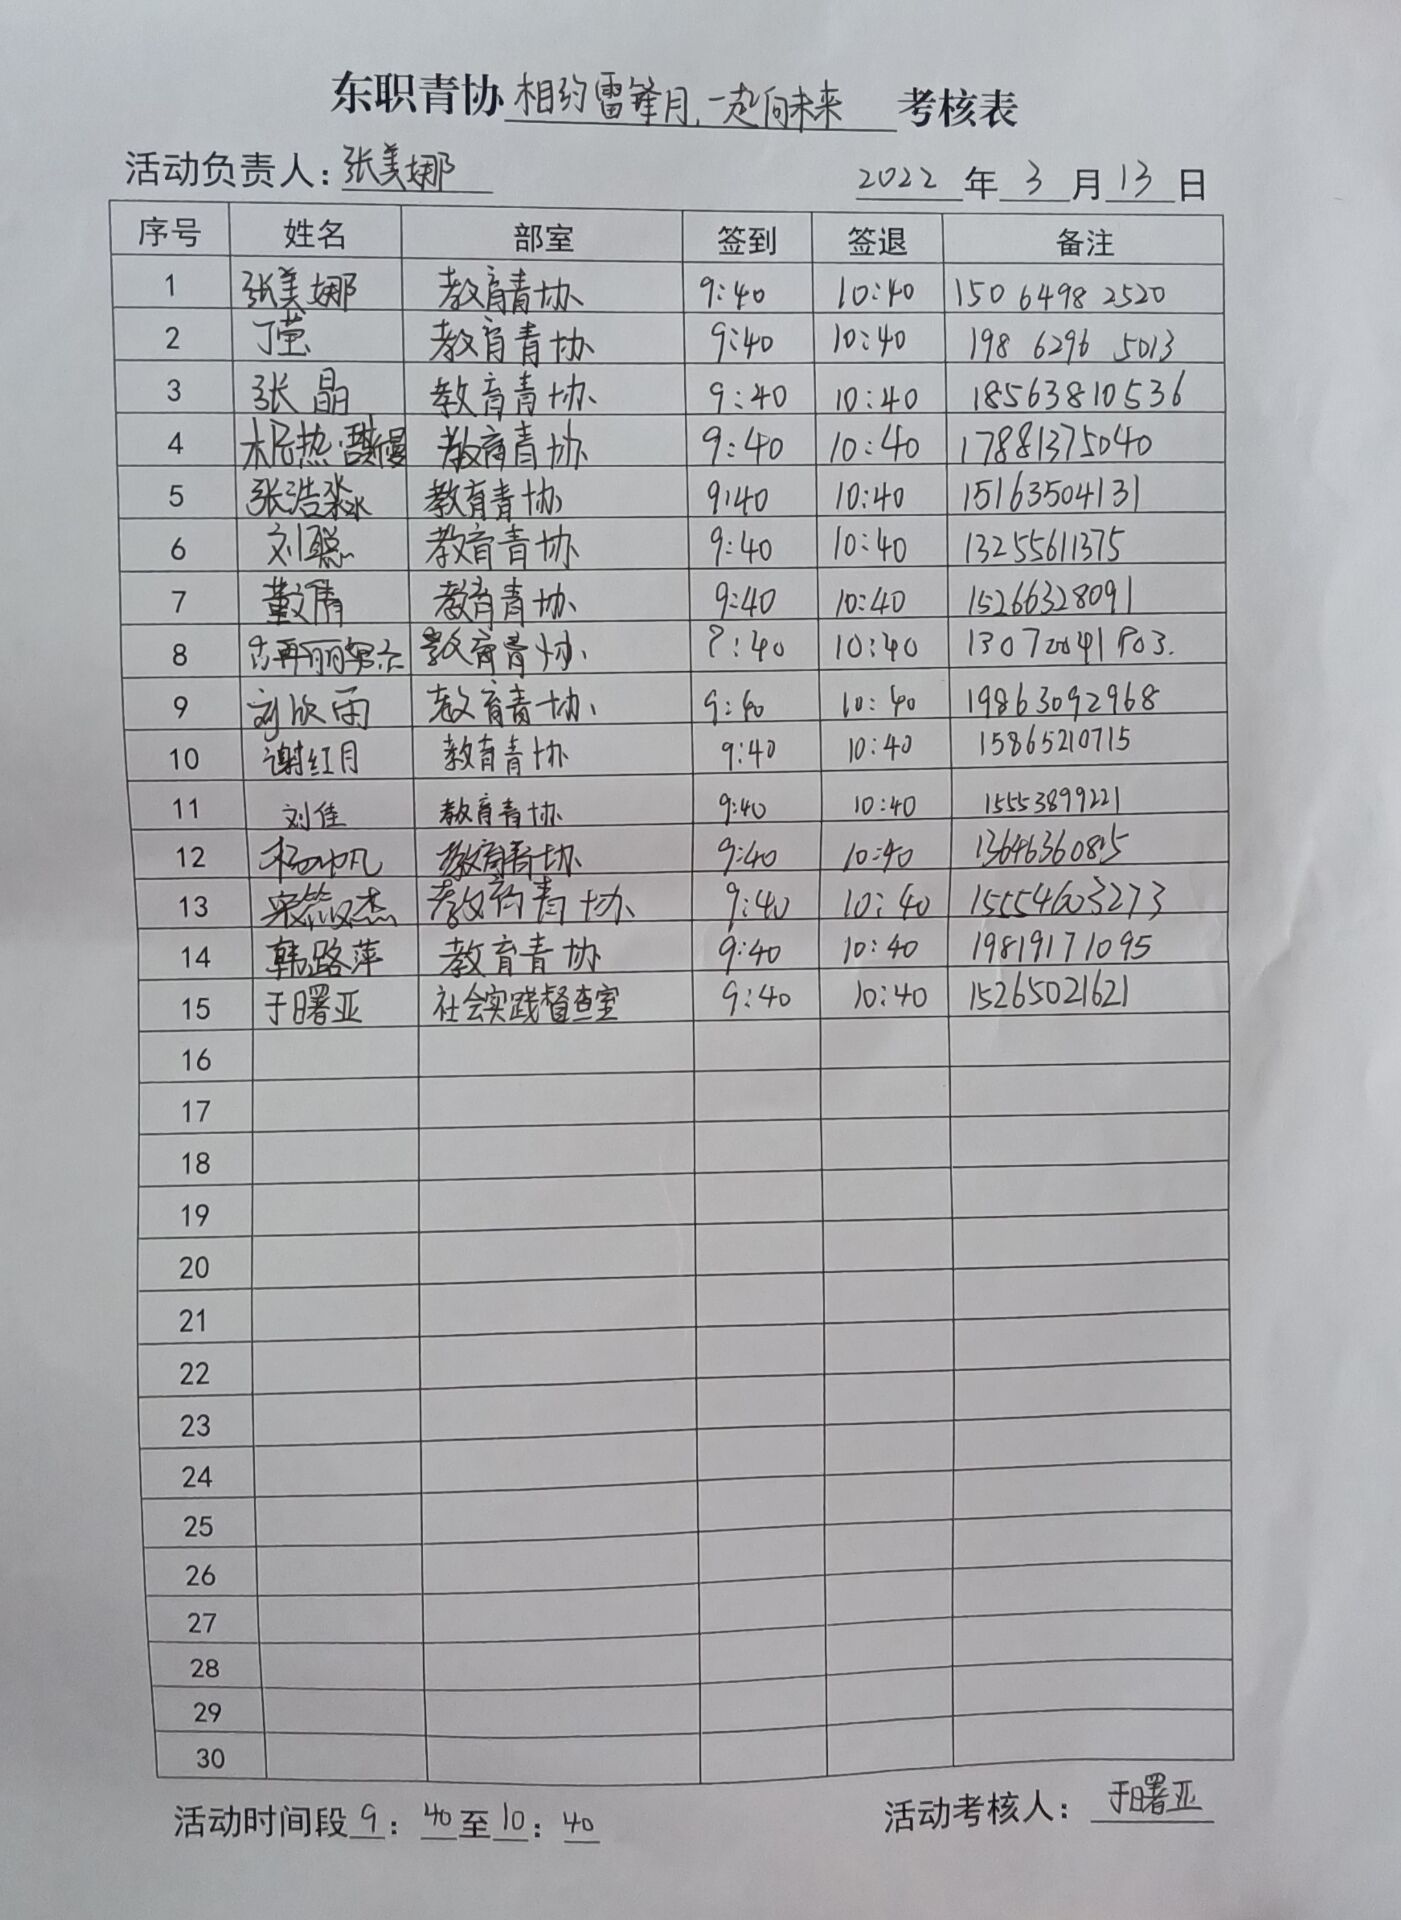 东职青协 相约雷锋月,一起向未来 考核表
活动负责人: 张美娜 2022 年 3 月 13 日
序号 姓名 部室 签到 签退 备注
1 张美娜 教育青协 9:40 10:40 150 6498 2520
2 丁莹 教育青协 9:40 10:40 198 6296 5013
3 张晶 教育青协 9:40 10:40 18563810536
4 教育青协 9:40 10:40 17881375040
5 张浩淼 教育青协 9:40 10:40 15163504131
6 刘聪 教育青协 9:40 10:40 13255611375
7 董文倩 教育青协 9:40 10:40 15266328091
8 教育青协 9:40 10:40
9 刘欣雨 教育青协 9:40 10:40 19863092968
10 谢红月 教育青协 9:40 10:40 15865210715
11 刘佳 教育青协 9:40 10:40 15553899221
12 教育青协 9:40 10:40
13 教育青协 9:40 10:40 15554603273
14 韩路萍 教育青协 9:40 10:40 19819171095
15 于曙亚 社会实践督查室 9:40 10:40 15265021621
16
17
18
19
20
21
22
23
24
25
26
27
28
29
30
活动时间段 9: 40 至 10: 40 活动考核人: 于曙亚